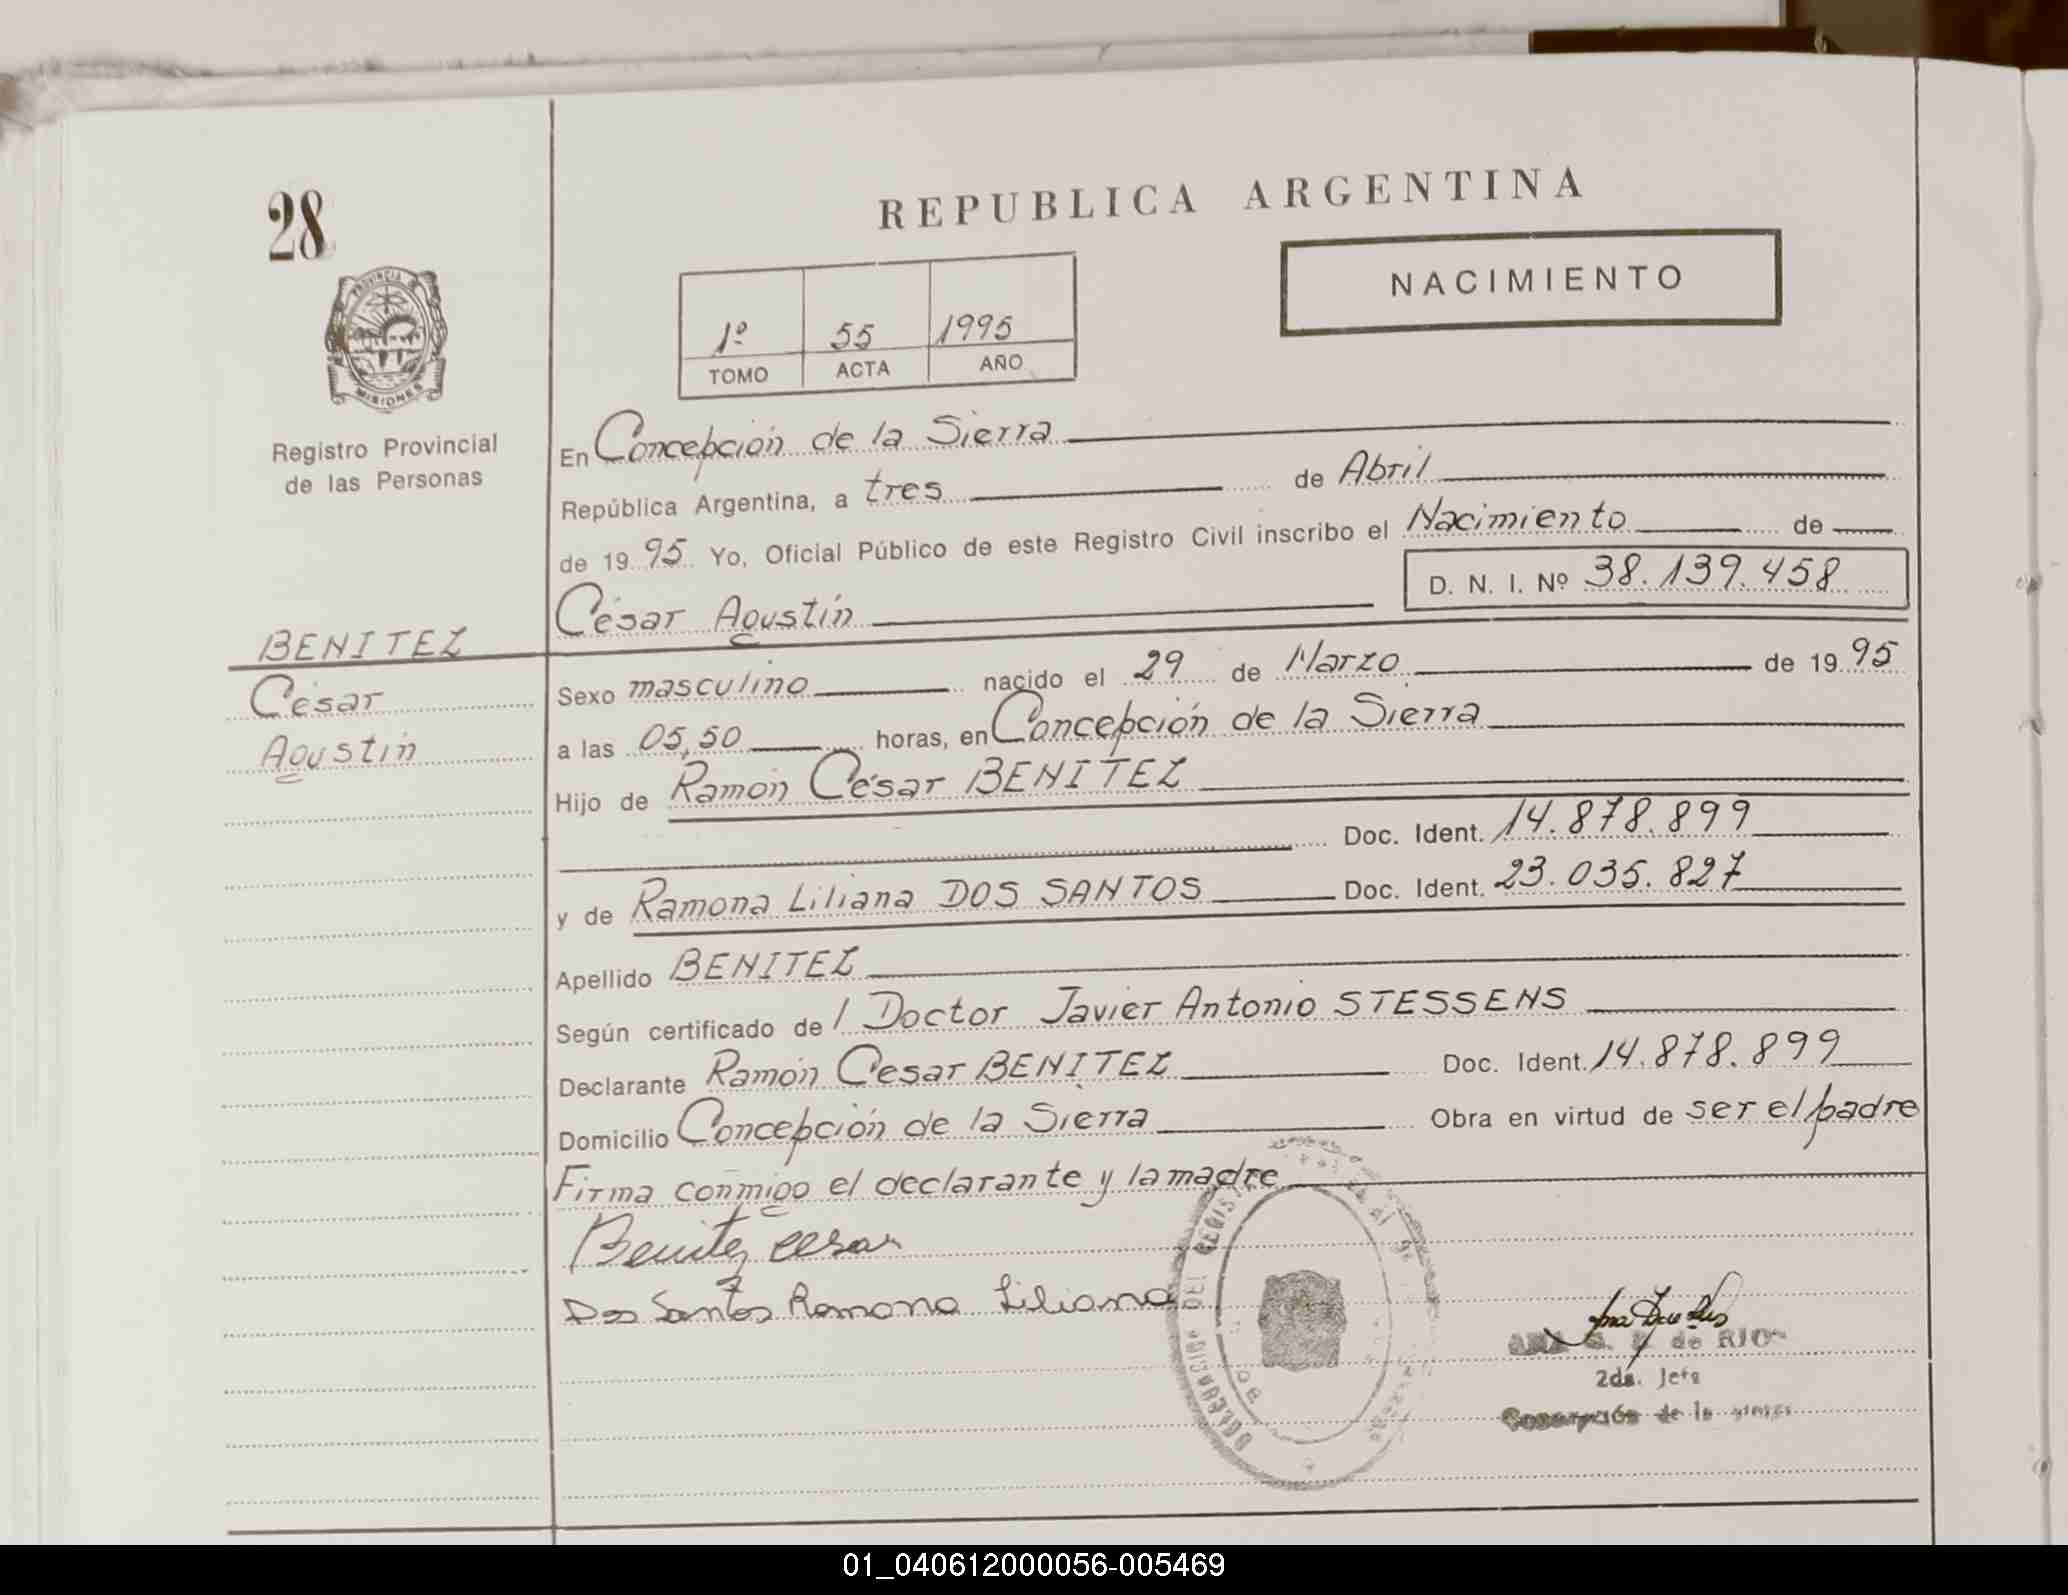 28
PROVINCIA DE
MISIONES
Registro Provincial
de las Personas
BENITEZ
César
Agustín
REPUBLICA ARGENTINA
NACIMIENTO
1º 55 1995
TOMO ACTA AÑO
En Concepción de la Sierra
República Argentina, a tres de Abril
de 1995 Yo, Oficial Público de este Registro Civil inscribo el Nacimiento de
D. N. I. Nº 38.139.458
César Agustín
Sexo masculino nacido el 29 de Marzo de 1995
a las 05,50 horas, en Concepción de la Sierra
Hijo de Ramón César BENITEZ
Doc. Ident. 14.878.899
y de Ramona Liliana DOS SANTOS Doc. Ident. 23.035.827
Apellido BENITEZ
Según certificado del Doctor Javier Antonio STESSENS
Declarante Ramón Cesar BENITEZ Doc. Ident. 14.878.899
Domicilio Concepción de la Sierra Obra en virtud de ser el padre
Firma conmigo el declarante y la madre
Benitez Cesar
Dos Santos Ramona Liliana
DEL REGIS
de RIO
2da. Jefe
Concepción de la
01_040612000056-005469